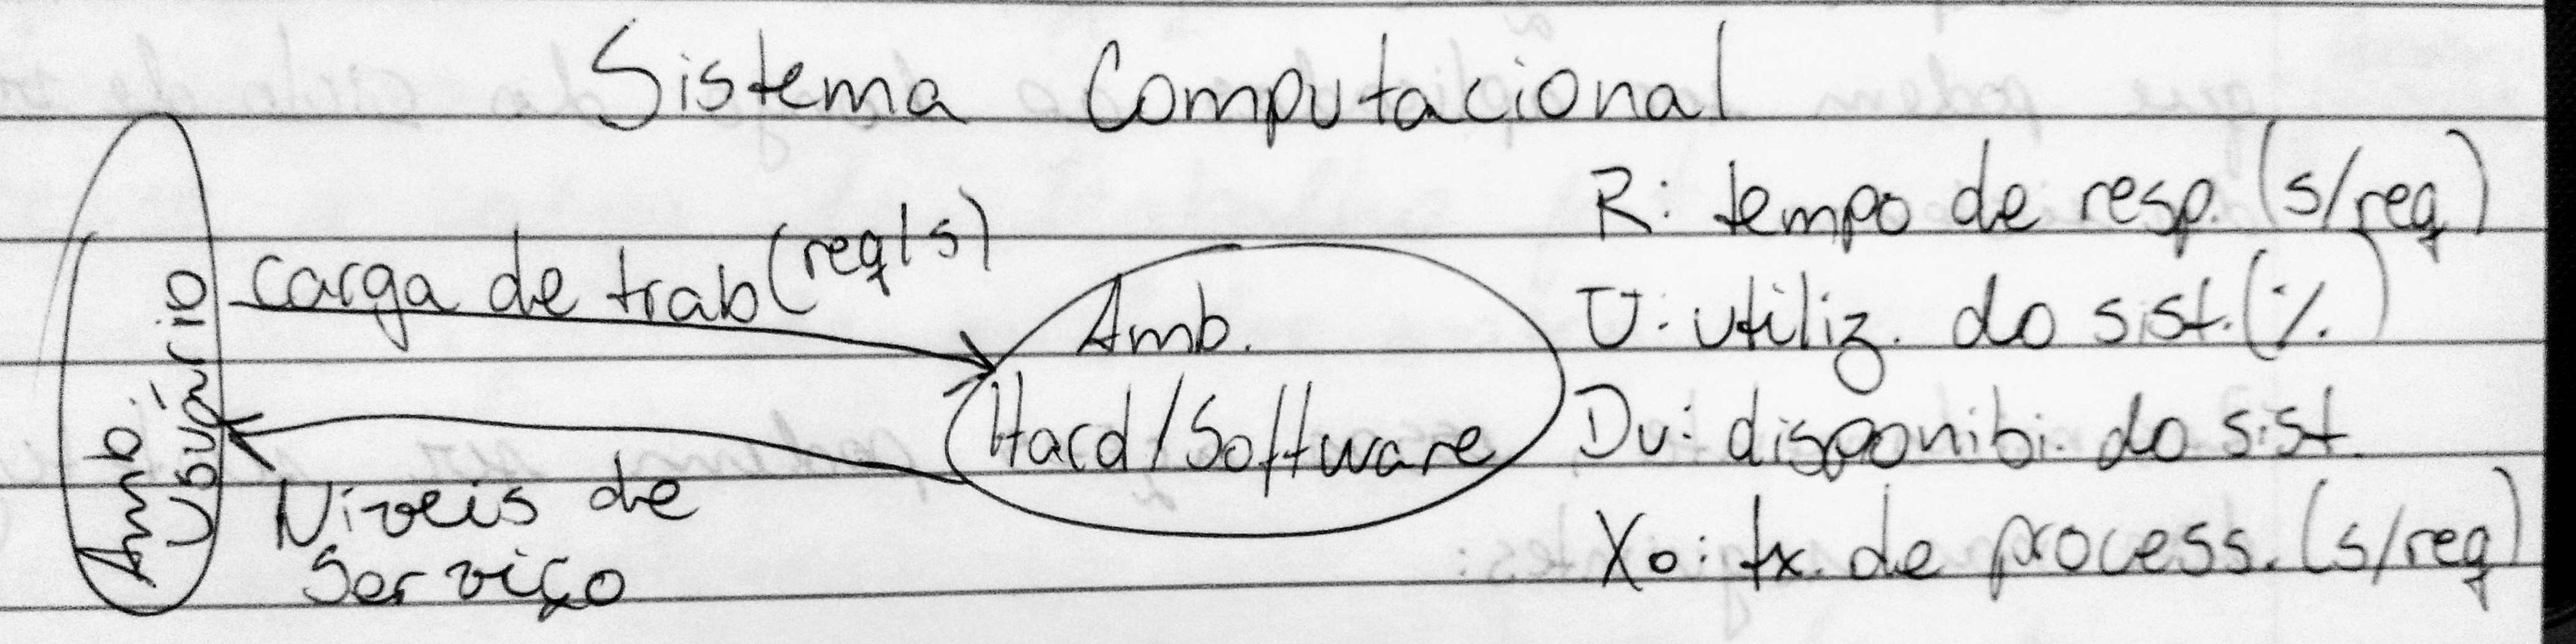 Sistema Computacional
Amb.
Usuário
carga de trab (req/s)
Níveis de
Serviço
Amb.
Hard/Software
R: tempo de resp. (s/req)
U: utiliz. do sist. (%)
Du: disponibi. do sist.
Xo: tx. de process. (s/req)